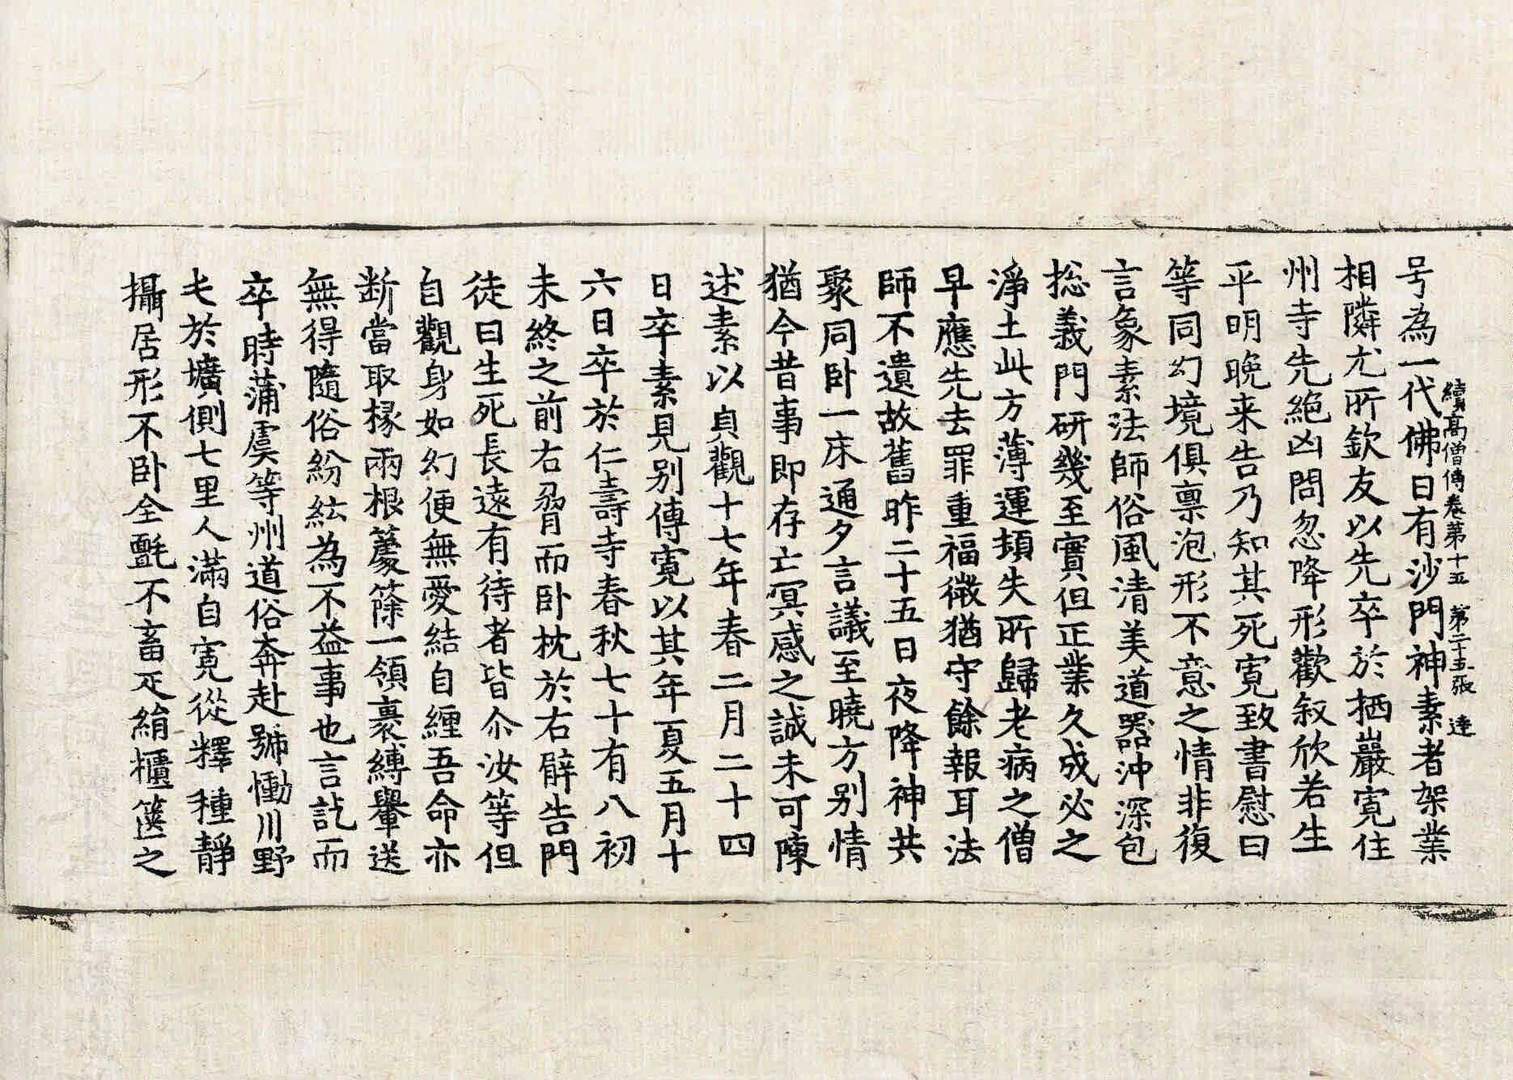 續高僧傳卷第十五 第二十五張 達
号為一代佛日有沙門神素者架業
相隣尤所欽友以先卒於栖巖寬住
州寺先絕凶問忽降形歡叙欣若生
平明晚来告乃知其死寬致書慰曰
等同幻境俱禀泡形不意之情非復
言象素法師俗風清美道器沖深包
捴義門研幾至實但正業久成必之
淨土此方薄運頓失所歸老病之僧
早應先去罪重福微猶守餘報耳法
師不遺故舊昨二十五日夜降神共
聚同卧一床通夕言議至曉方别情
猶今昔事即存亡冥感之誠未可陳
述素以貞觀十七年春二月二十四
日卒素見别傳寬以其年夏五月十
六日卒於仁壽寺春秋七十有八初
未終之前右脅而卧枕於右臂告門
徒曰生死長遠有待者皆尒汝等但
自觀身如幻便無愛結自纏吾命亦
断當取椽兩根蘧篨一領裹縛轝送
無得隨俗紛紜為不益事也言訖而
卒時蒲虞等州道俗奔赴號慟川野
七於壙側七里人滿自寬從釋種靜
攝居形不卧全氈不畜疋絹櫃篋之